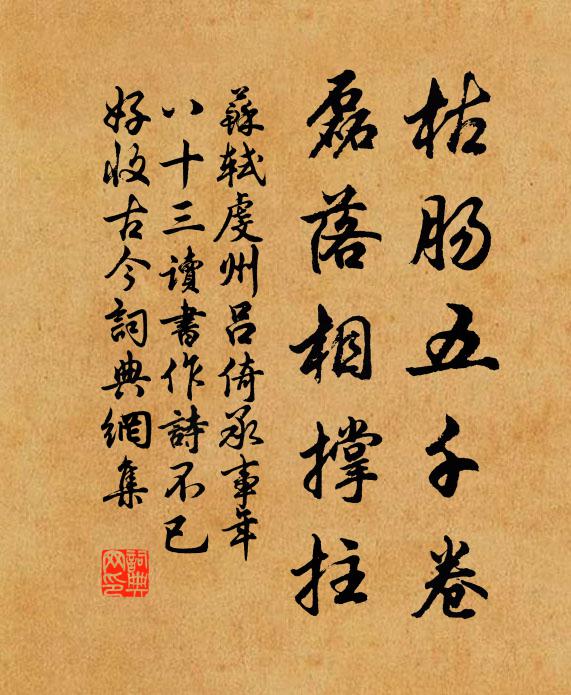 枯肠五千卷
磊落相撑拄
蘇軾虔州呂倚承事年
八十三讀書作詩不已
好收古今詞典網集
詞典
网印